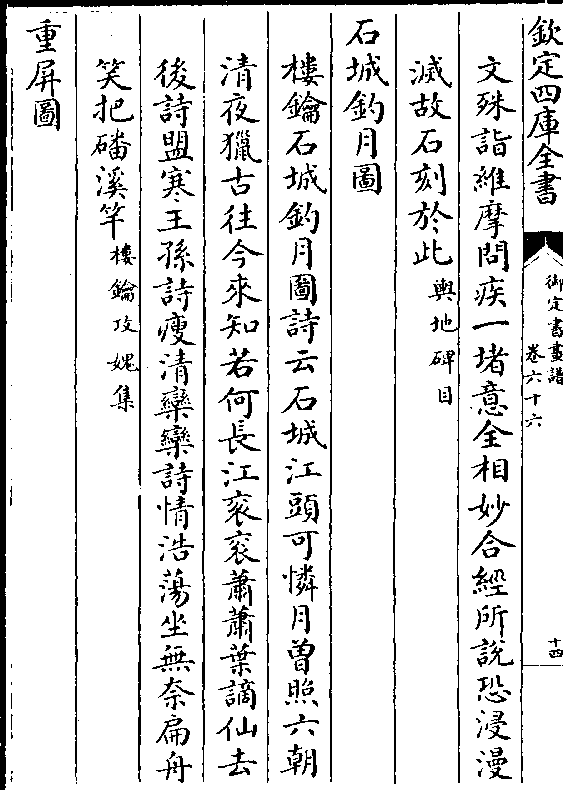 欽定四庫全書
御定書畫譜
卷六十六
十四
文殊詣維摩問疾一堵意全相妙合經所說恐浸漫
滅故石刻於此輿地碑目
石城釣月圖
樓鑰石城釣月圖詩云石城江頭可憐月曾照六朝
清夜獵古往今來知若何長江衮衮蕭蕭葉謫仙去
後詩盟寒王孫詩瘦清欒欒詩情浩蕩坐無奈扁舟
笑把磻溪竿樓鑰攻媿集
重屏圖